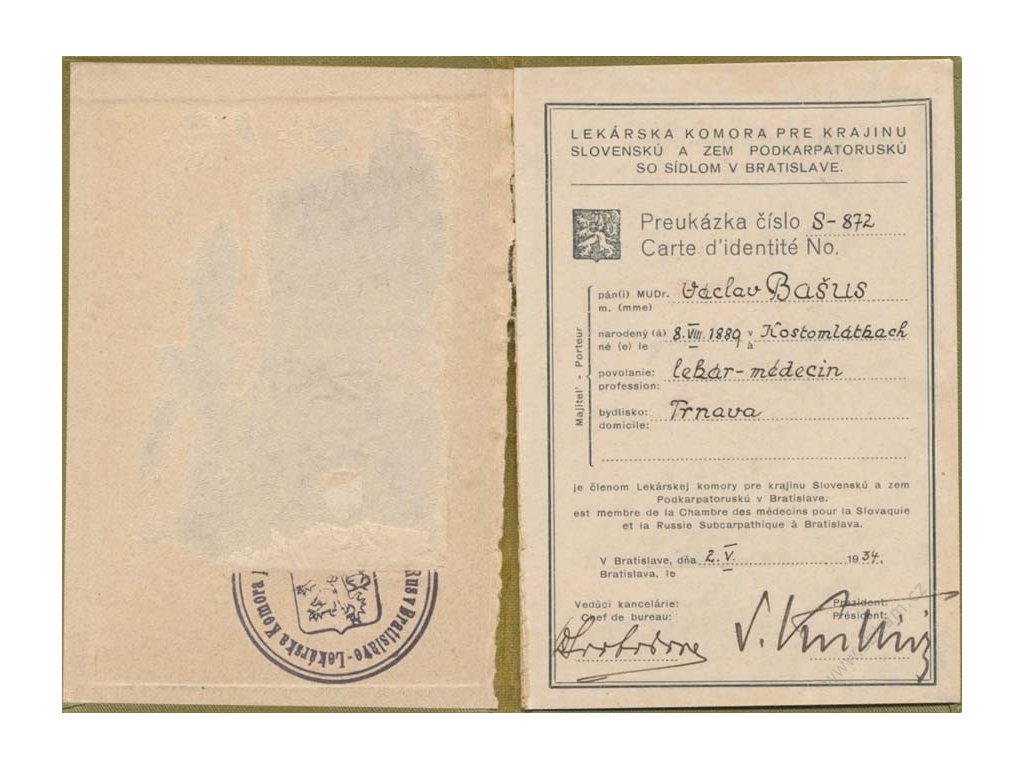 LEKÁRSKA KOMORA PRE KRAJINU
SLOVENSKÚ A ZEM PODKARPATORUSKÚ
SO SÍDLOM V BRATISLAVE.
Preukázka číslo S-872
Carte d'identité No.
Majiteľ - Porteur
pán(i) MUDr. Václav Bašus
m. (mme)
narodený (á) 8. VIII. 1889 v Kostomlátkach
né (e) le à
povolanie: lekár-médecin
profession:
bydlisko: Trnava
domicile:
je členom Lekárskej komory pre krajinu Slovenskú a zem
Podkarpatoruskú v Bratislave.
est membre de la Chambre des médecins pour la Slovaquie
et la Russie Subcarpathique à Bratislava.
V Bratislave, dňa 2. V. 1934.
Bratislava, le
Vedúci kancelárie: Prezident:
Chef de bureau: Président:
Rus v Bratislave - Lekárska Komora